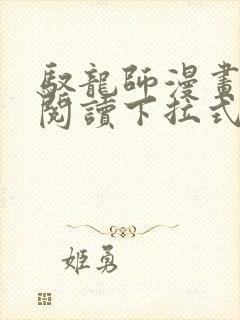 馭龍師漫畫
閱讀下拉式
姬勇